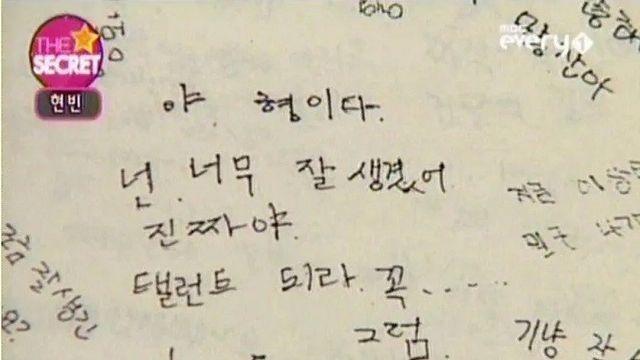 THE
SECRET
현빈
mbc
every1
야. 형이다.
넌 너무 잘 생겼어
진짜야.
탤런트 되라. 꼭.....
그럼
잘 생긴
기냥